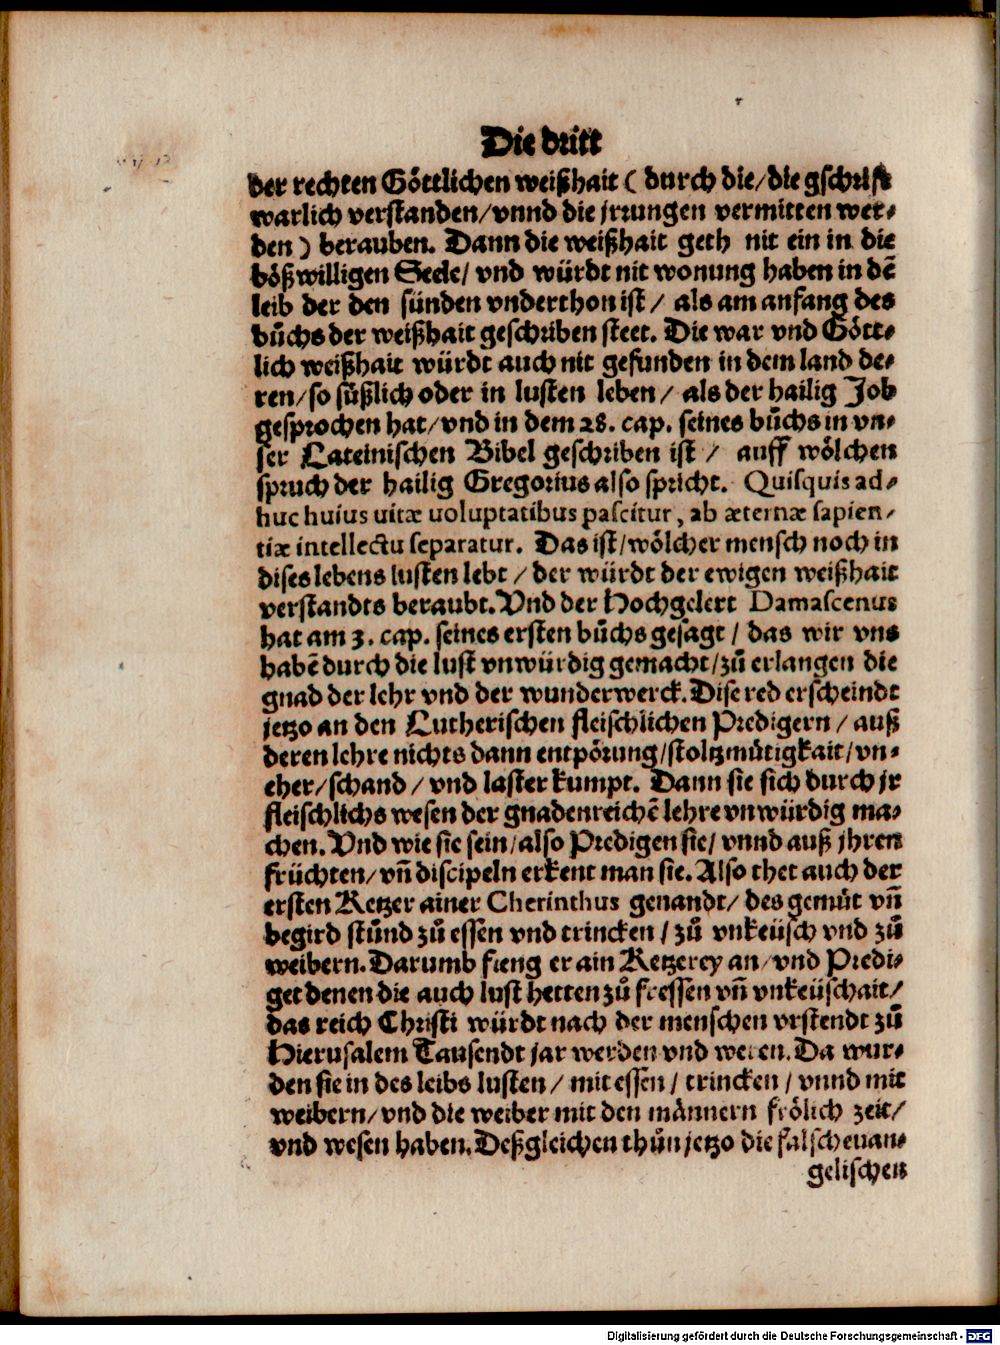 Die dritt
der rechten Göttlichen weißhait ( durch die/die gschrift
warlich verstanden/vnnd die jrrungen vermitten wer⸗
den ) berauben. Dann die weißhait geth nit ein in die
bößwilligen Seele/ vnd würdt nit wonung haben in dē
leib der den sünden vnderthon ist / als am anfang des
bůchs der weißhait geschriben steet. Die war vnd Gött⸗
lich weißhait würdt auch nit gefunden in dem land de⸗
ren/so süßlich oder in lusten leben / als der hailig Job
gesprochen hat/vnd in dem 28. cap. seines bůchs in vn⸗
ser Lateinischen Bibel geschriben ist / auff wölchen
spruch der hailig Gregorius also spricht. Quisquis ad⸗
huc huius uitæ uoluptatibus pascitur, ab æternæ sapien⸗
tiæ intellectu separatur. Das ist/wölcher mensch noch in
dises lebens lusten lebt / der würdt der ewigen weißhait
verstandts beraubt. Vnd der Hochgelert Damascenus
hat am 3. cap. seines ersten bůchs gesagt / das wir vns
habē durch die lust vnwürdig gemacht/zů erlangen die
gnad der lehr vnd der wunderwerck. Dise red erscheindt
jetzo an den Lutherischen fleischlichen Predigern / auß
deren lehre nichts dann entpörung/stoltzmůtigkait/vn⸗
eher/schand / vnd laster kumpt. Dann sie sich durch jr
fleischlichs wesen der gnadenreichē lehre vnwürdig ma⸗
chen. Vnd wie sie sein/also Predigen sie/ vnnd auß jhren
früchten/vñ discipeln erkent man sie. Also thet auch der
ersten Ketzer ainer Cherinthus genandt/ des gemůt vñ
begird stůnd zů essen vnd trincken / zů vnkeüsch vnd zů
weibern. Darumb fieng er ain Ketzerey an/vnd Predi⸗
get denen die auch lust hetten zů fressen vñ vnkeüschait/
das reich Christi würdt nach der menschen vrstendt zů
Hierusalem Tausendt jar werden vnd weren. Da wur⸗
den sie in des leibs lusten / mit essen / trincken / vnnd mit
weibern/vnd die weiber mit den männern frölich zeit/
vnd wesen haben. Deßgleichen thůn jetzo die falsch euan⸗
gelischen
Digitalisierung gefördert durch die Deutsche Forschungsgemeinschaft - DFG